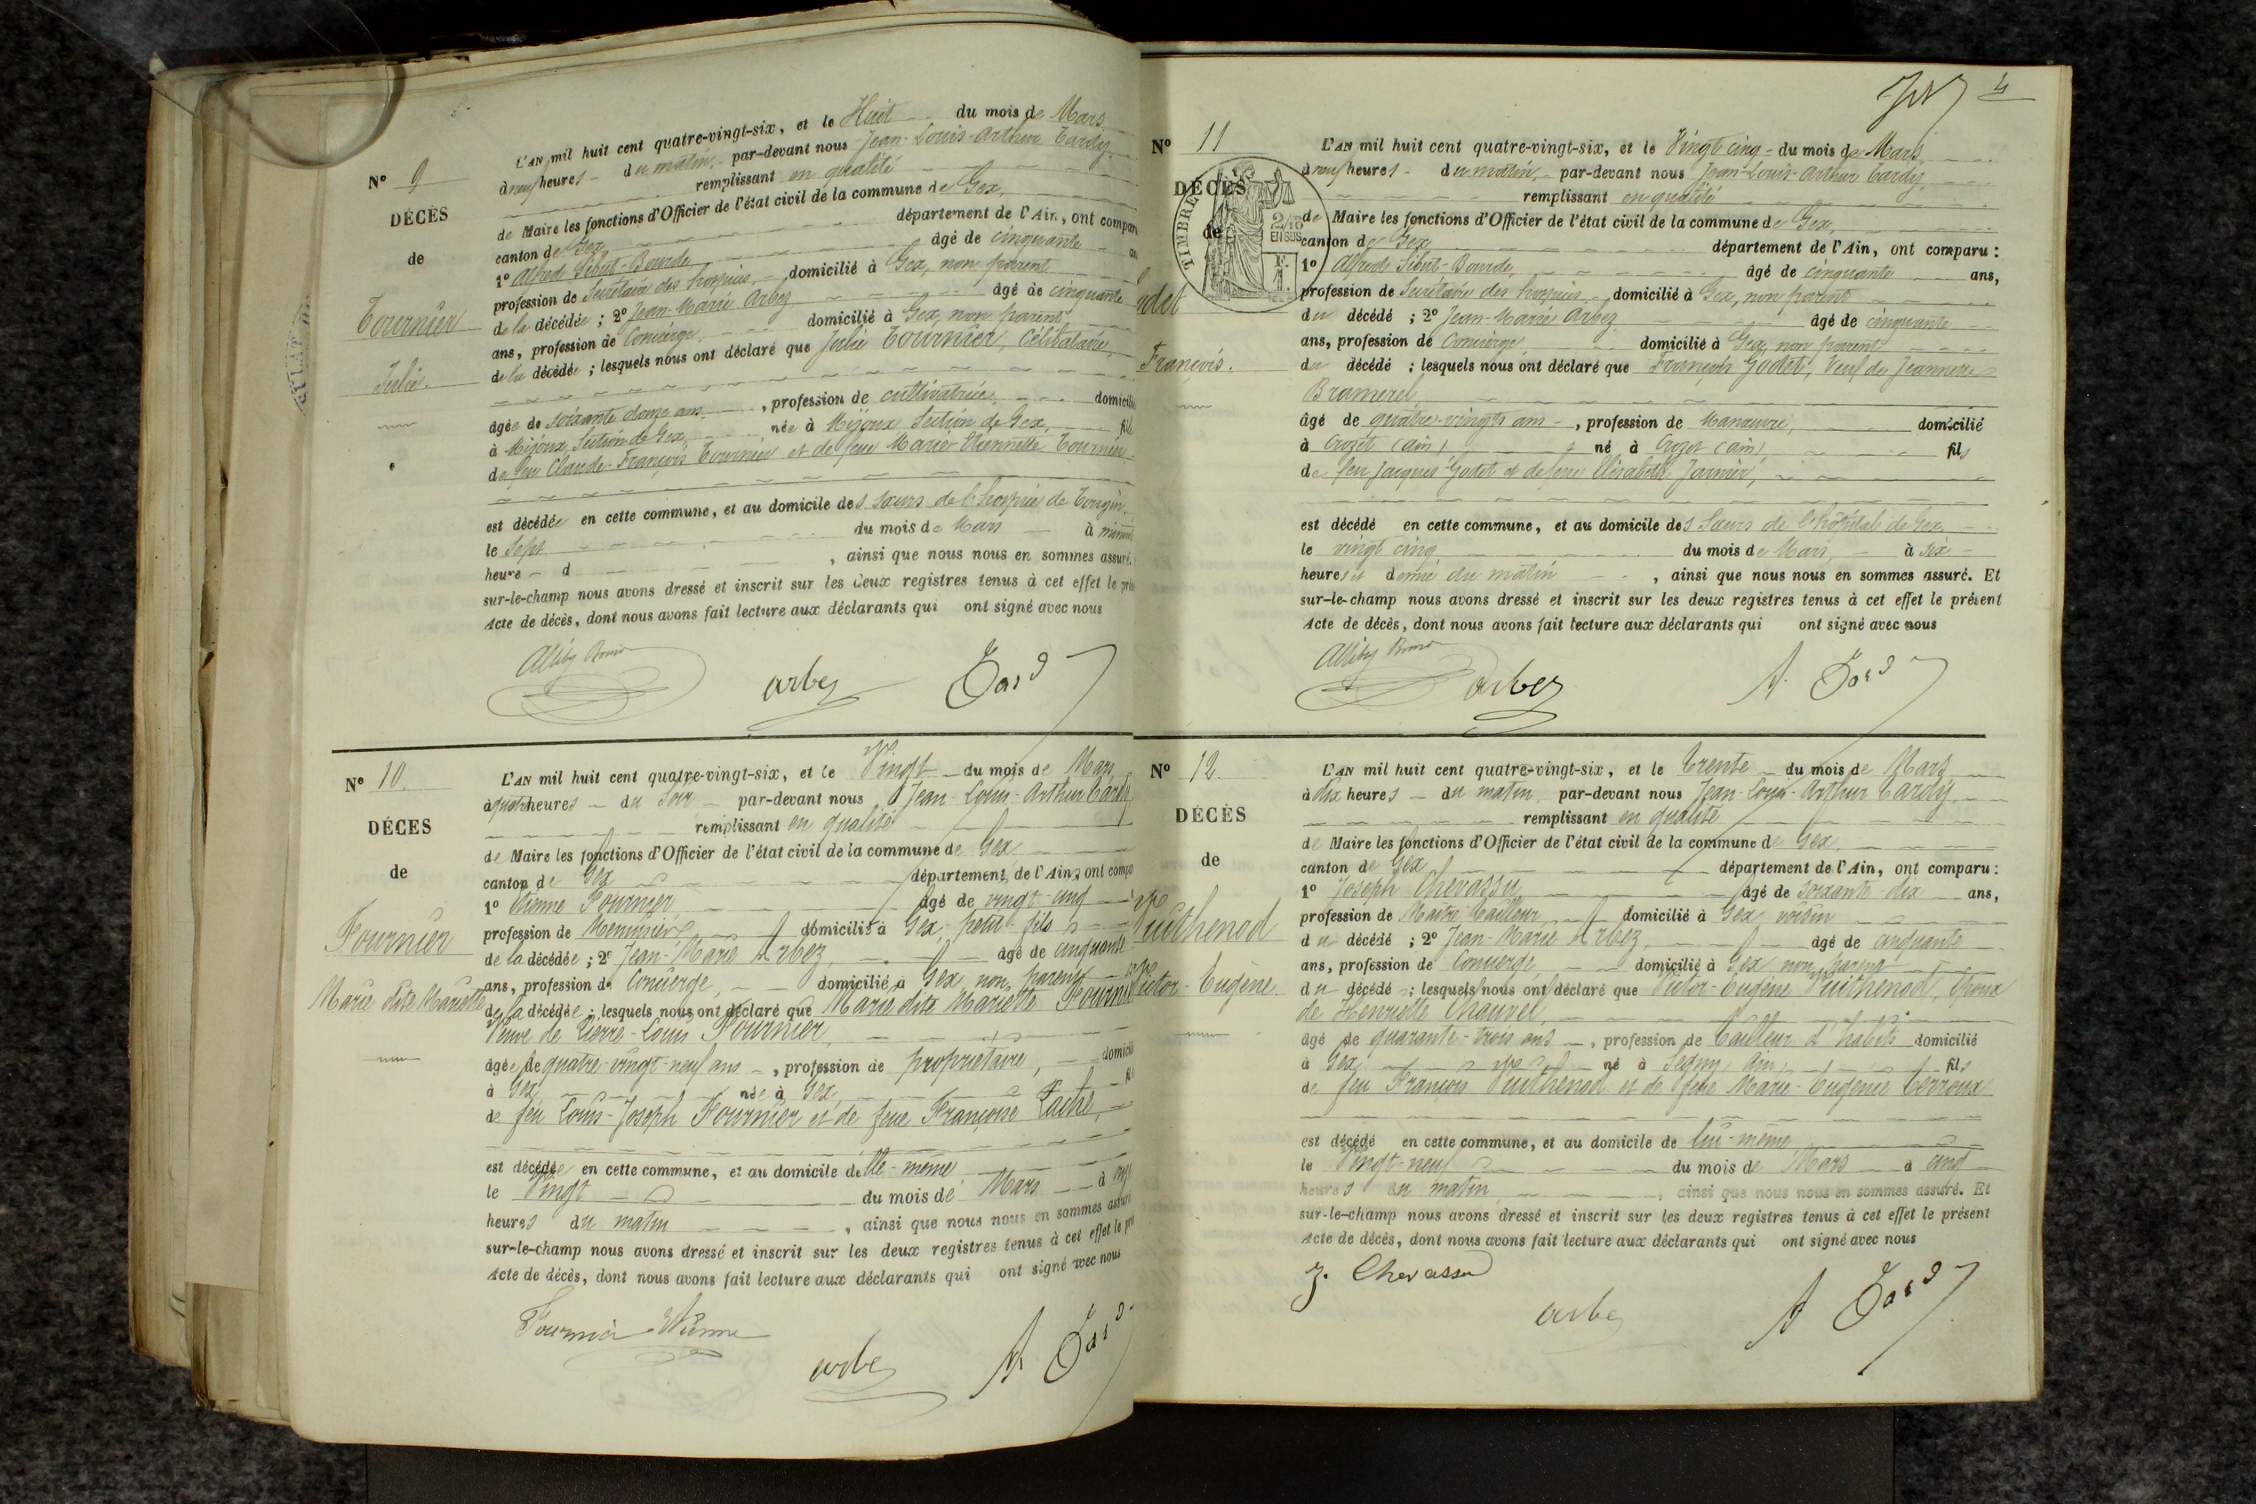 N° 9
DÉCÈS
de
Tournier
Julie.
L'AN mil huit cent quatre-vingt-six, et le Huit du mois de Mars
à neuf heures du matin, par-devant nous Jean-Louis-Arthur Tardy
remplissant en qualité
de Maire les fonctions d'Officier de l'état civil de la commune de Gex,
canton de Gex département de l'Ain, ont compar
1° Alfred Sibut-Bourde âgé de cinquante an
profession de Secrétaire des hospices, domicilié à Gex, non parent
de la décédée ; 2° Jean-Marie Arbez âgé de cinquante
ans, profession de Concierge, domicilié à Gex, non parent
de la décédée ; lesquels nous ont déclaré que Julie Tournier, Célibataire,
âgée de soixante douze ans, profession de cultivatrice, domicili
à Mijoux Section de Gex, née à Mijoux Section de Gex, fill
de feu Claude-François Tournier et de feue Marie-Etiennette Tournier
est décédée en cette commune, et au domicile des sœurs de l'hospice de Tougin
le Sept du mois de Mars à minuit
heure d , ainsi que nous nous en sommes assuré.
sur-le-champ nous avons dressé et inscrit sur les deux registres tenus à cet effet le pré
Acte de décès, dont nous avons fait lecture aux déclarants qui ont signé avec nous
arbez
Tardy
N° 10.
DÉCES
de
Fournier
Marie dite Mariette
L'AN mil huit cent quatre-vingt-six, et le Vingt du mois de Mars
à quatre heures du Soir par-devant nous Jean-Louis-Arthur Tardy
remplissant en qualité
de Maire les fonctions d'Officier de l'état civil de la commune de Gex
canton de Gex département de l'Ain, ont compa
1° Etienne Fournier âgé de vingt-cinq
profession de Menuisier domicilié à Gex, petit fils
de la décédée ; 2° Jean-Marie Arbez, âgé de cinquante
ans, profession de Concierge, domicilié à Gex, non parent
de la décédée ; lesquels nous ont déclaré que Marie dite Mariette Fournier
Veuve de Pierre-Louis Fournier,
âgée de quatre-vingt-neuf ans, profession de propriétaire, domicili
à Gex, née à Gex, fi
de feu Louis-Joseph Fournier et de feue Françoise
est décédée en cette commune, et au domicile d'elle-même
le Vingt du mois de Mars à onze
heures du matin , ainsi que nous nous en sommes assuré
sur-le-champ nous avons dressé et inscrit sur les deux registres tenus à cet effet le pré
Acte de décès, dont nous avons fait lecture aux déclarants qui ont signé avec nous
Fournier Etienne
arbez
A. Tardy
4
N° 11
DÉCÈS
de
Godet
François.
TIMBRE
2/10
EN SUS
F.
1
L'AN mil huit cent quatre-vingt-six, et le Vingt cinq du mois de Mars
à neuf heures du matin, par-devant nous Jean-Louis-Arthur Tardy
remplissant en qualité
de Maire les fonctions d'Officier de l'état civil de la commune de Gex,
canton de Gex département de l'Ain, ont comparu :
1° Alfred Sibut-Bourde, âgé de cinquante ans,
profession de Secrétaire des hospices, domicilié à Gex, non parent
du décédé ; 2° Jean-Marie Arbez âgé de cinquante
ans, profession de Concierge domicilié à Gex, non parent
du décédé ; lesquels nous ont déclaré que François Godet, Veuf de Jeannette
Bramerel,
âgé de quatre-vingts ans, profession de Manœuvre, domicilié
à Crozet (ain) né à Crozet (ain), fils
de feu Jacques Godet et de feue Elisabeth
est décédé en cette commune, et au domicile des Sœurs de l'hôpital de Gex,
le vingt cinq du mois de Mars, à six
heures et demie du matin , ainsi que nous nous en sommes assuré. Et
sur-le-champ nous avons dressé et inscrit sur les deux registres tenus à cet effet le présent
Acte de décès, dont nous avons fait lecture aux déclarants qui ont signé avec nous
arbez
A. Tardy
N° 12.
DÉCÈS
de
Vuithenod
Victor-Eugène.
L'AN mil huit cent quatre-vingt-six, et le Trente du mois de Mars
à dix heures du matin par-devant nous Jean-Louis-Arthur Tardy,
remplissant en qualité
de Maire les fonctions d'Officier de l'état civil de la commune de Gex,
canton de Gex département de l'Ain, ont comparu :
1° Joseph Chevassu âgé de soixante-dix ans,
profession de Maître tailleur domicilié à Gex, voisin
du décédé ; 2° Jean-Marie Arbez, âgé de cinquante
ans, profession de Concierge, domicilié à Gex non parent
du décédé ; lesquels nous ont déclaré que Victor-Eugène Vuithenod, Époux
de Henriette Chauvel,
âgé de quarante-trois ans, profession de Tailleur d'habits domicilié
à Gex, né à Ain, fils
de feu François Vuithenod et de feue Marie-Eugénie Terroux
est décédé en cette commune, et au domicile de lui-même
le Vingt-neuf du mois de Mars à cinq
heures du matin , ainsi que nous nous en sommes assuré. Et
sur-le-champ nous avons dressé et inscrit sur les deux registres tenus à cet effet le présent
Acte de décès, dont nous avons fait lecture aux déclarants qui ont signé avec nous
J. Chevassu
arbez
A. Tardy